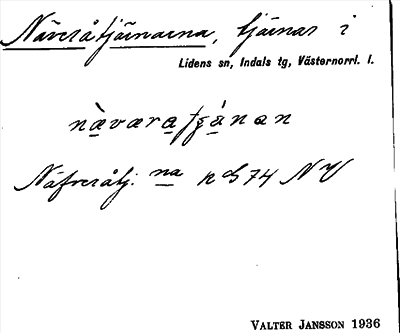 Näveråtjärnarna, tjärnar i
Lidens sn, Indals tg, Västernorrl. l.
nàværaʃɟánan
Näfveråtj. na n
74 NV
VALTER JANSSON 1936